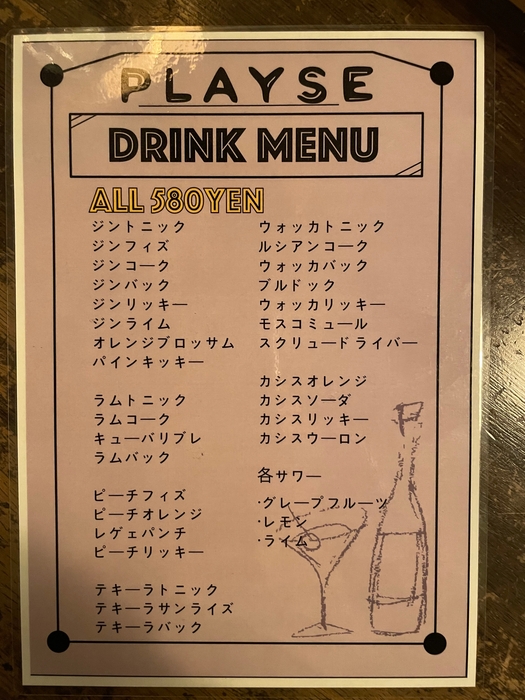 PLAYSE
DRINK MENU
ALL 580YEN
ジントニック
ジンフィズ
ジンコーク
ジンバック
ジンリッキー
ジンライム
オレンジブロッサム
パインキッキー
ラムトニック
ラムコーク
キューバリブレ
ラムバック
ピーチフィズ
ピーチオレンジ
レゲェパンチ
ピーチリッキー
テキーラトニック
テキーラサンライズ
テキーラバック
ウォッカトニック
ルシアンコーク
ウォッカバック
ブルドック
ウォッカリッキー
モスコミュール
スクリュードライバー
カシスオレンジ
カシスソーダ
カシスリッキー
カシスウーロン
各サワー
・グレープフルーツ
・レモン
・ライム